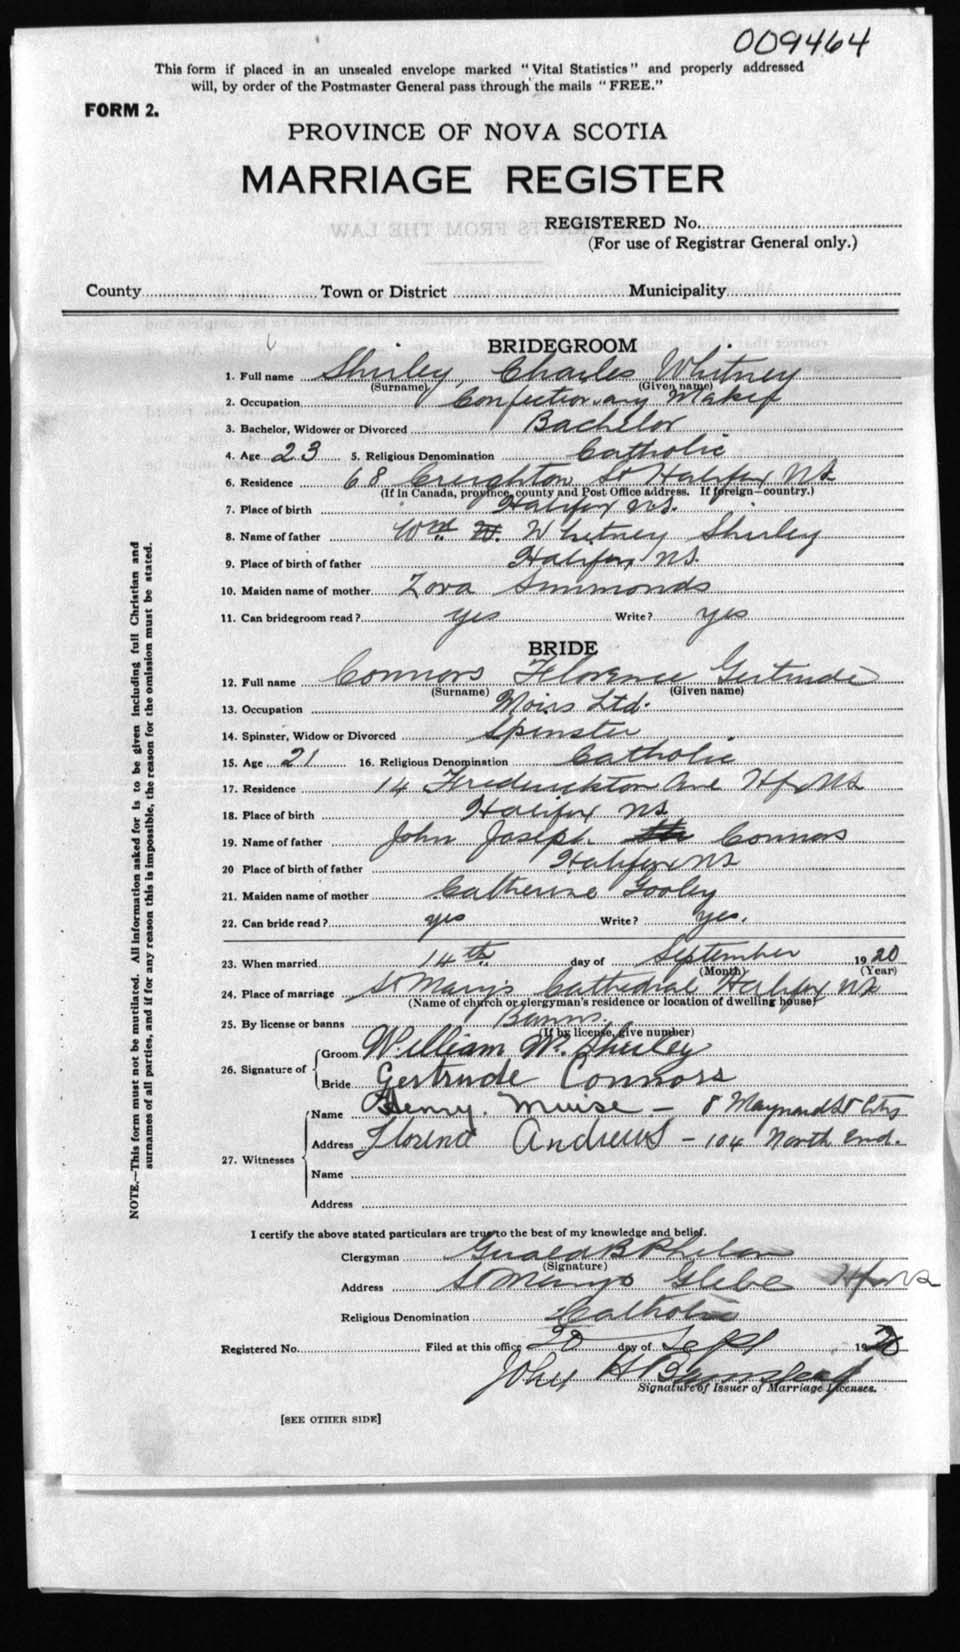 009464
This form if placed in an unsealed envelope marked "Vital Statistics" and properly addressed
will, by order of the Postmaster General pass through the mails "FREE."
FORM 2.
PROVINCE OF NOVA SCOTIA
MARRIAGE REGISTER
REGISTERED No.
(For use of Registrar General only.)
County Town or District Municipality
BRIDEGROOM
1. Full name Shirley, Charles Whitney
(Surname) (Given name)
2. Occupation Confectionary Maker
3. Bachelor, Widower or Divorced Bachelor
4. Age 23 5. Religious Denomination Catholic
6. Residence 68 Creighton St Halifax NS
(If in Canada, province, county and Post Office address. If foreign—country.)
7. Place of birth Halifax NS.
8. Name of father Wm Whitney Shirley
9. Place of birth of father Halifax NS.
10. Maiden name of mother Zora Simmonds
11. Can bridegroom read? yes Write? yes
BRIDE
12. Full name Connors Florence Gertrude
(Surname) (Given name)
13. Occupation Moirs Ltd.
14. Spinster, Widow or Divorced Spinster
15. Age 21 16. Religious Denomination Catholic
17. Residence 14 Fredrickton Ave Hfx NS
18. Place of birth Halifax NS
19. Name of father John Joseph Connors
20 Place of birth of father Halifax NS
21. Maiden name of mother Catherine Gooley
22. Can bride read? yes Write? yes.
23. When married 14th day of September 1920
(Month) (Year)
24. Place of marriage St Mary's Cathedral Halifax NS
(Name of church or clergyman's residence or location of dwelling house)
25. By license or banns Banns.
(If by license, give number)
26. Signature of Groom William W. Shirley
Bride Gertrude Connors
27. Witnesses Name Henry. Muise – 8 Maynard St City
Address Florence Andrews – 104 North End.
Name
Address
I certify the above stated particulars are true to the best of my knowledge and belief.
Clergyman Gerald B Phelan
(Signature)
Address St Mary's Glebe Hfx NS
Religious Denomination Catholic
Registered No. Filed at this office 20 day of Sept 1920
John H Barnstead
Signature of Issuer of Marriage Licenses.
[SEE OTHER SIDE]
NOTE.—This form must not be mutilated. All information asked for is to be given including full Christian and
surnames of all parties, and if for any reason this is impossible, the reason for the omission must be stated.